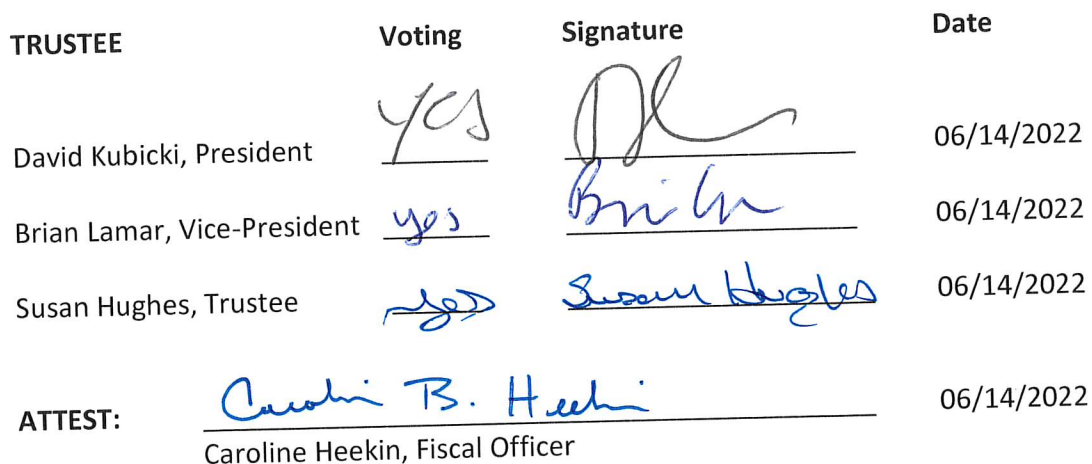 TRUSTEE Voting Signature Date
David Kubicki, President yes 06/14/2022
Brian Lamar, Vice-President yes 06/14/2022
Susan Hughes, Trustee yes Susan Hughes 06/14/2022
ATTEST: Caroline B. Heekin 06/14/2022
Caroline Heekin, Fiscal Officer